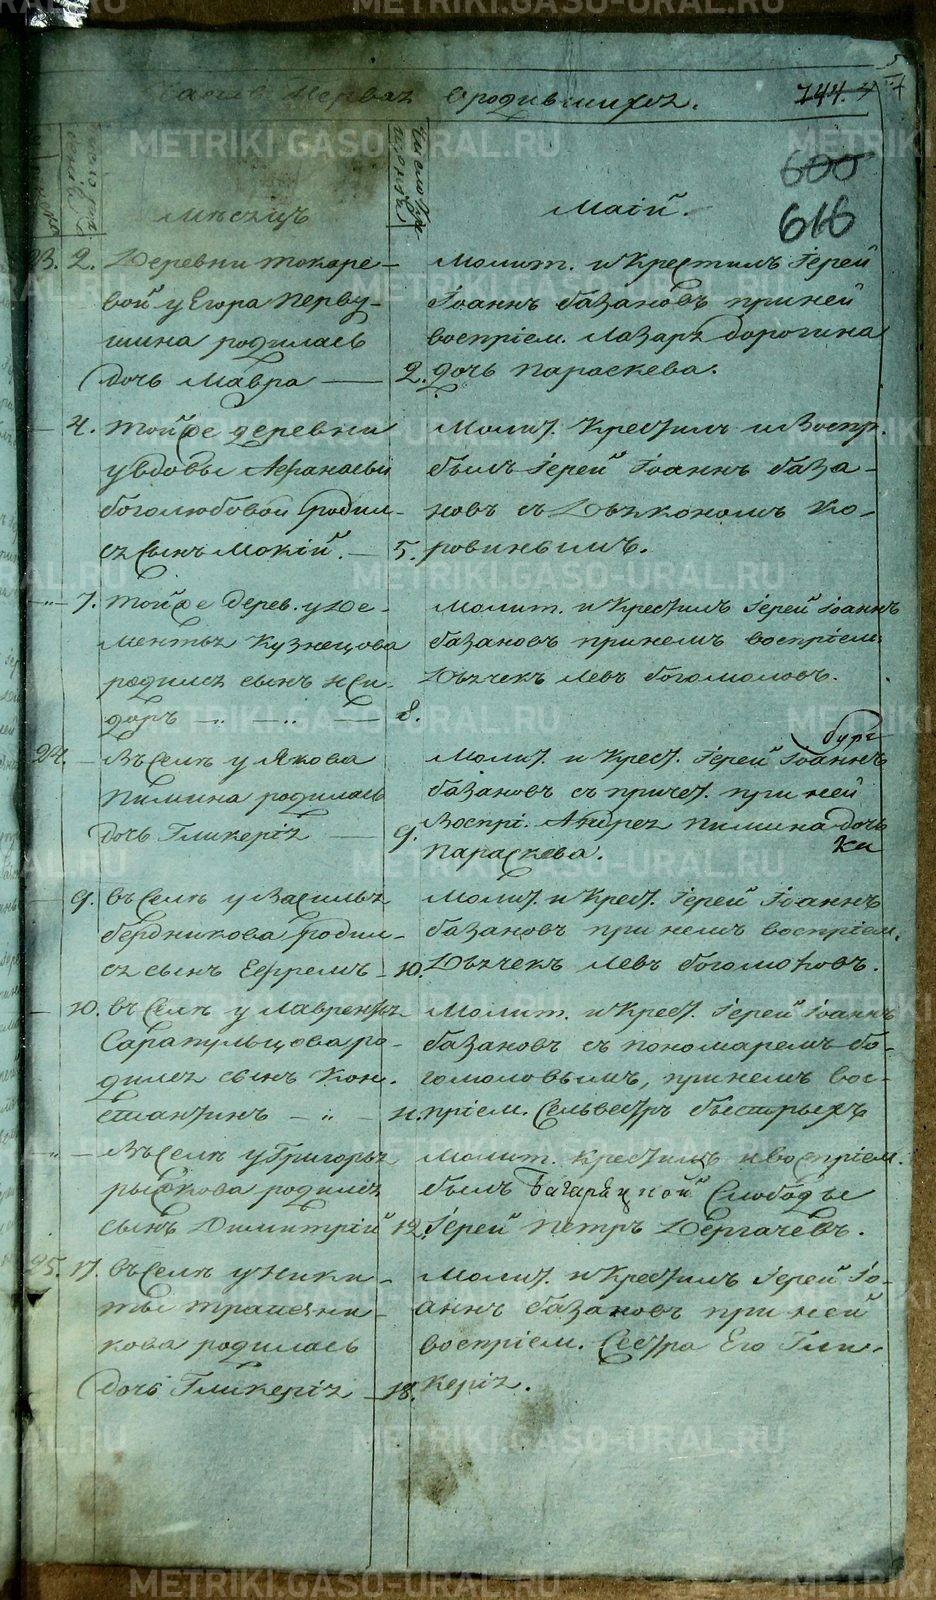 Часть Первая о родившихся.
744.
600
616
Число рожденiя
Число крещенiя
Мѣсяцъ Маiй.
23. 2. Деревни токаре-
вой у Егора Перву-
шина родилась
дочь Мавра — 2.
Молит. и Крестилъ Iерей
Iоаннъ базановъ при ней
воспрiем. Лазаря дорогина
дочь Параскева.
— 4. Той же деревни
у вдовы Афанасьи
боголюбовой родил-
ся сынъ Мокiй. — 5.
Молит. Крестилъ и Воспр.
былъ Iерей Iоаннъ база-
новъ съ Дьякономъ Ко-
ровинымъ.
—„— 7. Той же дерев. у Де-
ментья Кузнецова
родился сынъ Иси-
доръ —„— —„— — 8.
Молит. и Крестилъ Iерей Iоаннъ
базановъ при немъ воспрiем.
Дьячекъ Левъ богомоловъ.
24. — Въ Селѣ у Якова
Пимина родилась
дочь Гликерiя — 9.
Молит. и Крест. Iерей Iоаннъ
базановъ съ причет. при ней
Воспрi. Андрея Пимина дочь
Параскева.
— 9. въ Селѣ у Василья
бердникова родил-
ся сынъ Ефремъ — 10.
Молит. и Крест. Iерей Iоаннъ
базановъ при немъ воспрiем.
Дьячекъ Левъ богомоловъ.
— 10. въ Селѣ у Лаврентья
Сарапульцова ро-
дился сынъ Кон-
стантинъ —„— 11.
Молит. и Крест. Iерей Iоаннъ
базановъ съ пономаремъ бо-
гомоловымъ, при немъ вос-
прiем. Сельвестръ быстрыхъ
—„— — Въ Селѣ у Григорья
рыбкова родился
сынъ Димитрiй 12.
Молит. Крестилъ и воспрiем.
былъ Багаряцкой Слободы
Iерей Петръ Дергачевъ.
25. 17. въ Селѣ у Ники-
ты
кова родилась
дочь Гликерiя — 18.
Молит. и Крестилъ Iерей Iо-
аннъ базановъ при ней
воспрiем. Сестра Его Гли-
керiя.
METRIKI.GASO-URAL.RU